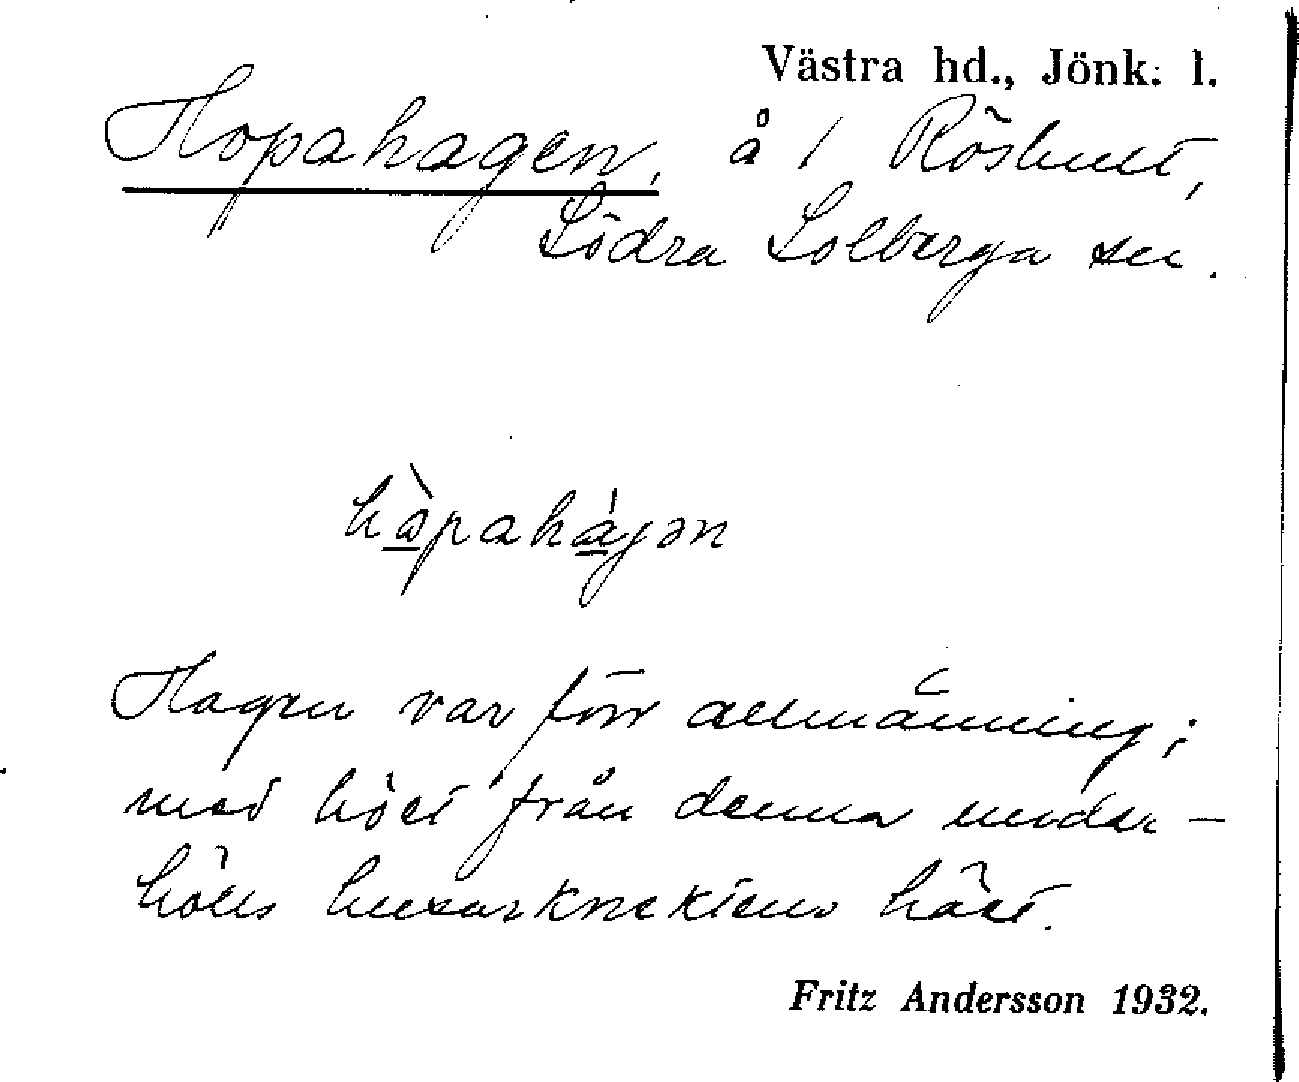 Västra hd., Jönk. l.
Hopahagen, å 1 Röshult,
Södra Solberga sn.
hò̱pahá̱gən
Hagen var förr allmänning;
med höet från denna under-
hölls husarknektens häst.
Fritz Andersson 1932.